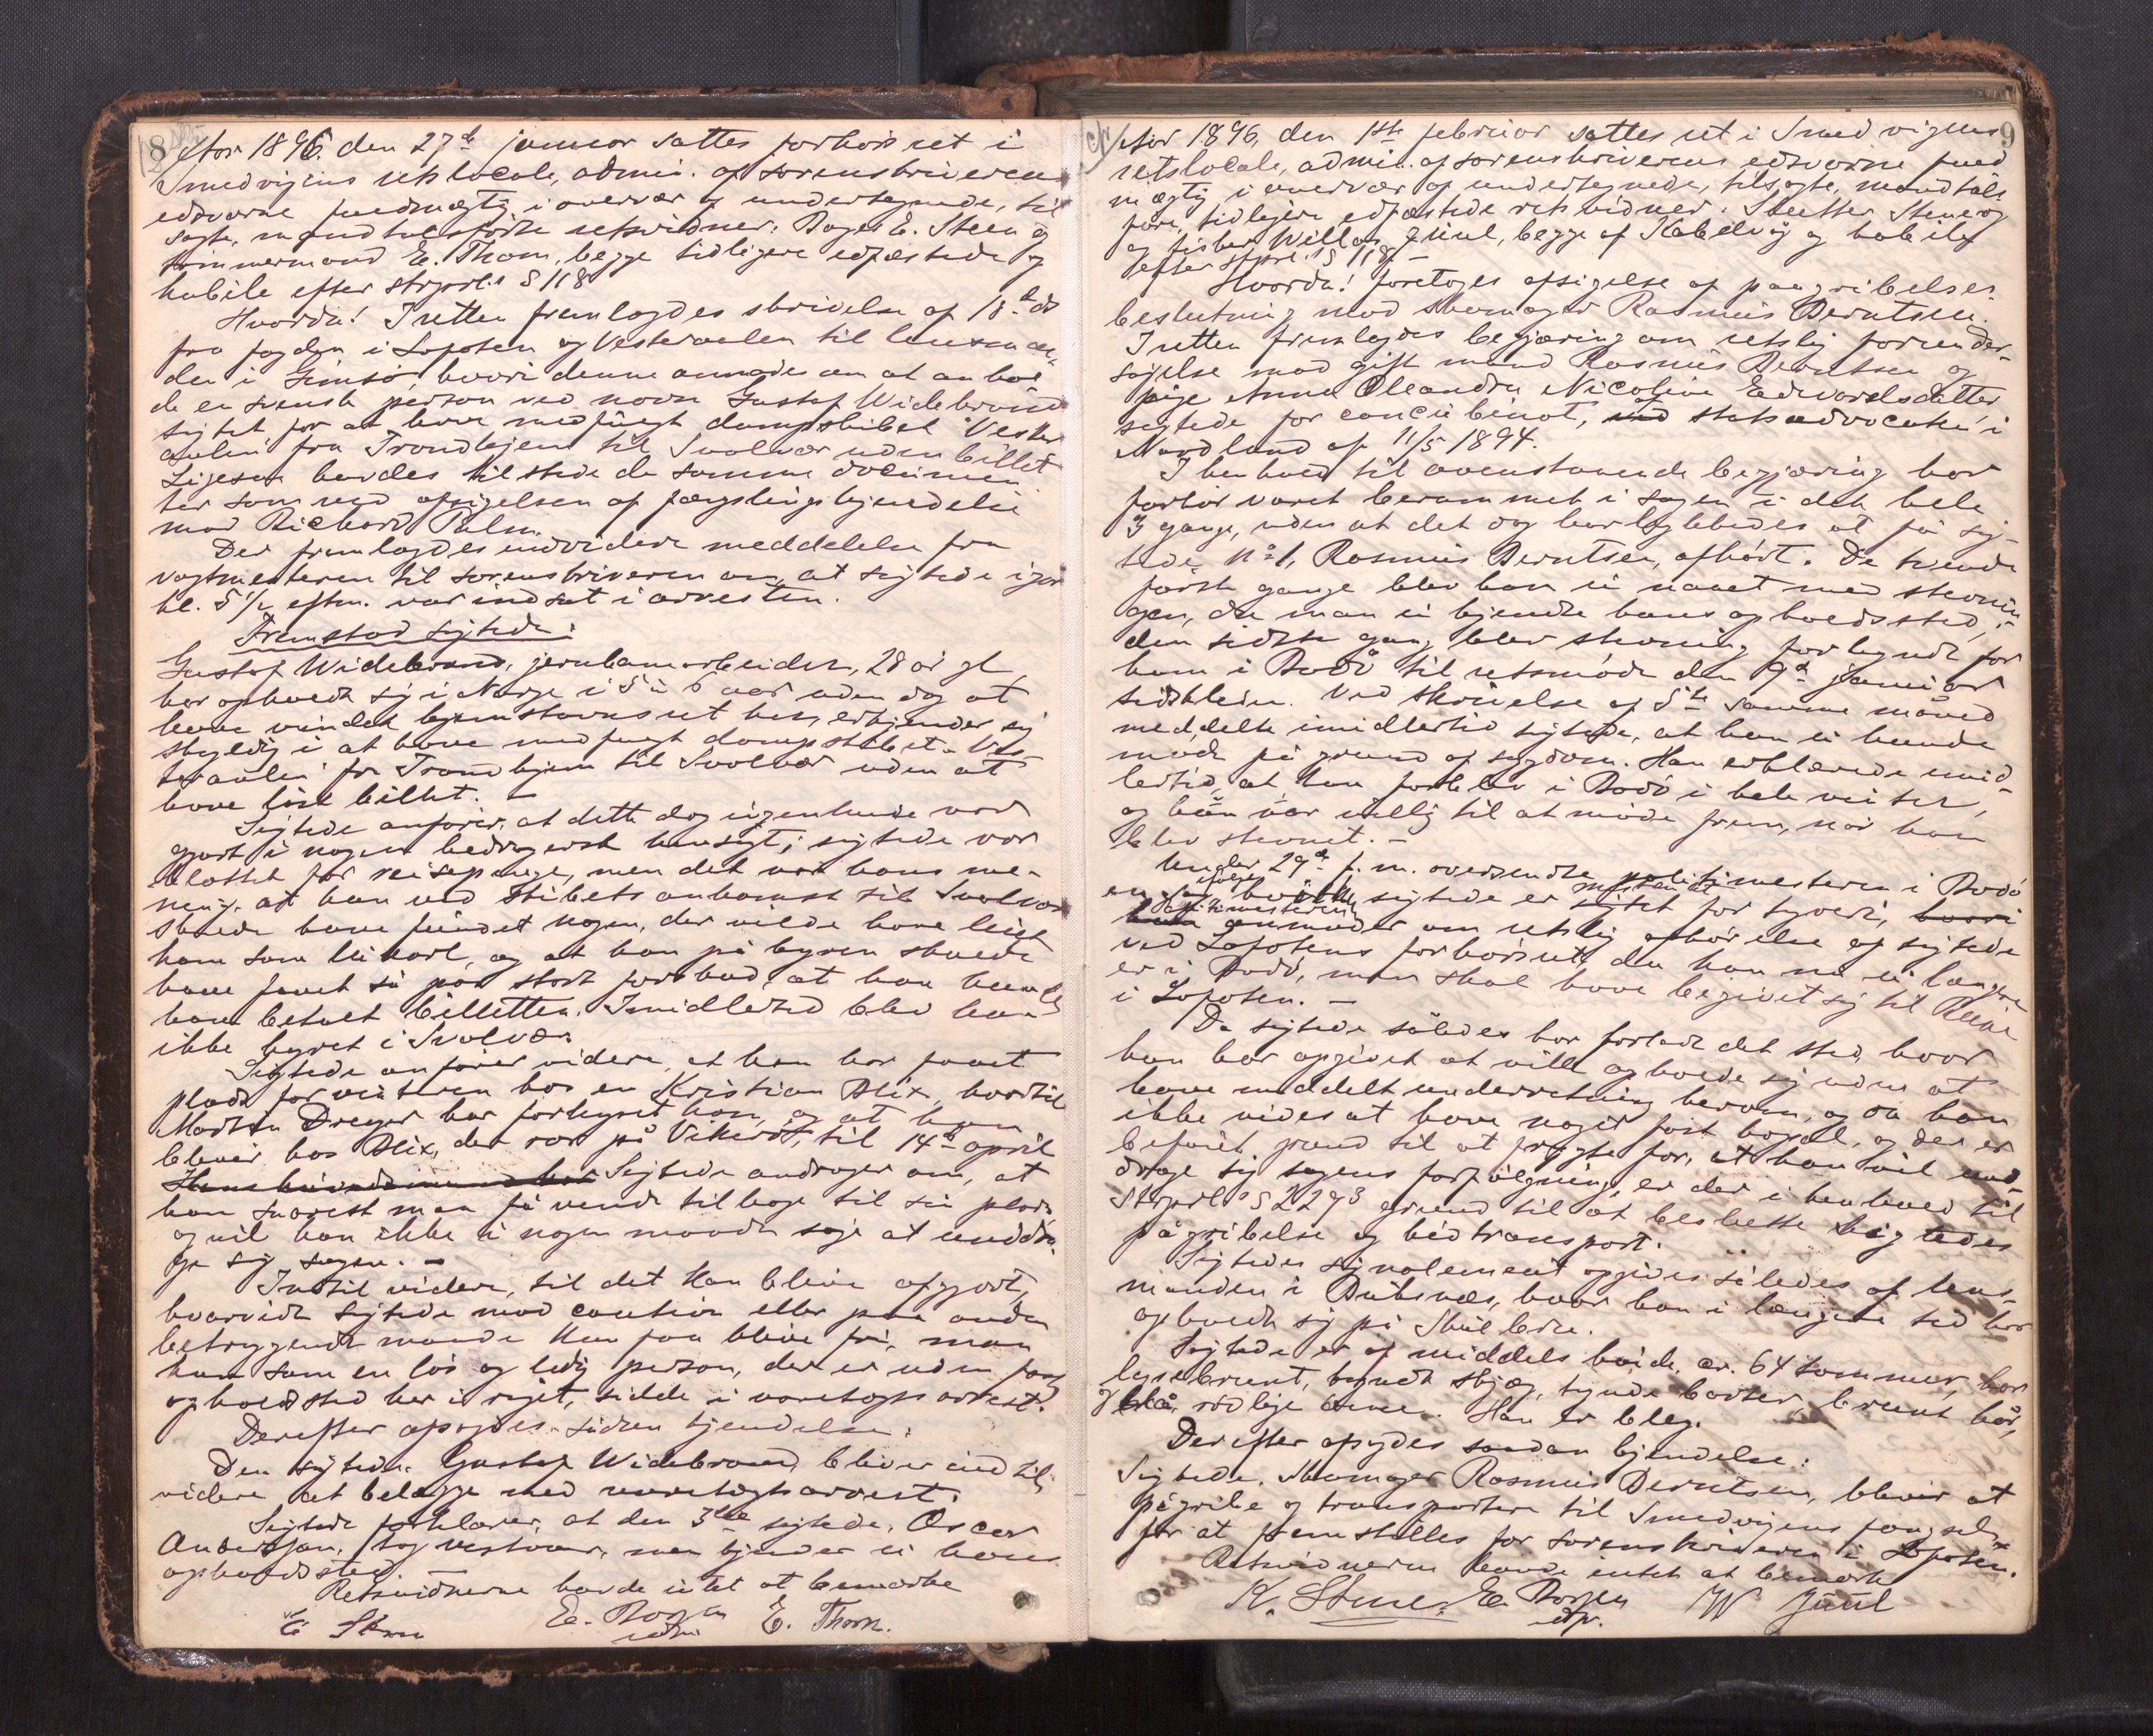 8
År 1896. den 27de januar sattes forhørsret i
Smedvigens retslocale, admin. af sorenskriverens
edsvorne fuldmægtig i overvær af undertegnede, til
sagte, mandtalsførte retsvidner: Bager E. Steen og
tømmermand E. Thorn, begge tidligere edfæstede og
habile efter strprl.s § 118
Hvorda! I retten fremlagdes skrivelse af 18de ds
fra fogden i Lofoten og Vesteraalen til lensman
den i Gimsø, hvori denne anmodes om at anhol
de en svensk person ved navn Gustaf Widebrand
sigtet for at have medfulgt dampskibet "Vester
aalen" fra Trondhjem til Svolvær uden billet
Ligesaa havdes tilstede de samme documen
ter som ved afsigelsen af fængslingskjendelse
mod Richard Palm.
Der fremlagdes endvidere meddelelse fra
vagtmesteren til sorenskriveren om, at sigtede igår
kl. 5 1/2 eftm. var indsat i arresten.
Fremstod sigtede:
Gustaf Widebrand, jernbanearbeider, 28 år gl
har opholdt sig i Norge i 5 à 6 aar uden dog at
have vundet hjemstavnsret her, erkjender sig
skyldig i at have medfulgt dampskibet "Ves
teraalen" fra Trondhjem til Svolvær uden at
have løst billet. –
Sigtede anfører, at dette dog ingenlunde var
gjort i nogen bedragersk hensigt; sigtede var
blottet for reisepenge, men det var hans me-
ning, at han ved skibets ankomst til Svolvær
skulde have fundet nogen, der vilde have leiet
ham som leikarl, og at han på hyren skulde
have faaet så paa stort forskud, at han kunde
have betalt billetten. Imidlertid blev han
ikke hyret i Svolvær.
Sigtede anfører videre, at han har faaet
plads for vinteren hos en Kristian Blix, hvortil
Martin Dreyer har forhyret ham, og at hyren
bliver hos Blix, der ror på Vikerø, til 14de april
Sigtede andrager om, at
han snarest maa få vende tilbage til sin plads
og vil han ikke i nogen maade søge at unddra
ge sig sagen. –
Indtil videre, til det kan blive afgjort,
hvorvidt sigtede mod caution eller paa anden
betryggende maade kan faa blive fri, maa
han som en løs og ledig person, der er uden fast
opholdssted her i riget, sidde i varetægtsarrest.
Derefter afsagdes sådan kjendelse:
Den sigtede Gustaf Widebrand bliver indtil
videre at belægge med varetægtsarrest.
Sigtede forklarer, at den 3die sigtede, Oscar
Andersson, tog vestover, men kjender ei hans
opholdssted. –
Retsvidnerne havde intet at bemærke
E Steen E. Borgen E. Thorn.
edsv.
9
År 1896, den 1ste februar sattes ret i Smedvigens
retslocale, admin. af sorenskriverens edsvorne fuld
mægtig i overvær af undertegnede, tilsagte, mandtals
førte, tidligere edfæstede retsvidner: Skutter Stene og
og fisker Willas Juul, begge af Kabelvåg og habile
efter strprl.s § 118. –
Hvorda! foretoges afsigelse af paagribelses
beslutning mod skomager Rasmus Berntsen.
I retten fremlagdes begjæring om retslig forunder
søgelse mod gift mand Rasmus Berntsen og
pige Anna Oleanda Nicoline Edvardsdatter
sigtede for concubinat, af statsadvocaten i
Nordland af 11/5 1894.
I henhold til ovenstaaende begjæring har
forhør været berammet i sagen i det hele
3 gange, uden at det dog har lykkedes at få sig-
tede no 1, Rasmus Berntsen, afhørt. De tvende
første gange blev han ei naaet med stevnin
gen, da man ei kjendte hans opholdssted;
den sidste gang blev stevning forkyndt for
ham i Bodø til retsmøde den 9de januar
sidstleden. Ved skrivelse af 5te samme måned
meddelte imidlertid sigtede, at han ei kunde
møde på grund af sygdom. Han erklærede imid
lertid, at han forblev i Bodø i hele vinter,
og han var villig til at møde frem, når han
blev stevnet. –
Under 29de f.m. oversendte politimesteren i Bodø
en sag ifølge hvilken sigtede er mistænkt for tyveri,
politimesteren anmoder om retslig afhørelse af sigtede
ved Lofotens forhørsret, da han nu ei længere
er i Bodø, men skal have begivet sig til Reine
i Lofoten. –
Da sigtede således har forladt det sted, hvor
han har opgivet at ville opholde sig uden at
have meddelt underretning herom, og da han
ikke vides at have noget fast bopæl, og der er
beføiet grund til at frygte for, at han vil und
drage sig sagens forfølgning, er der i henhold til
strprl.s § 229 3 grund til at beslutte sigtedes
pågribelse og hidtransport.
Sigtedes signalement opgives således af lens
manden i Buksnæs, hvor han i længere tid har
opholdt sig på Skulbru.
Sigtede er af middels høide, ca. 64 tommer, har
lysebrunt, tyndt skjæg, tynde barter, brunt hår,
og blå, rødlige øine. Han er bleg.
Derefter afsagdes saadan kjendelse:
Sigtede, skomager Rasmus Berntsen, bliver at
pågribe og transportere til Smedvigens fængsel
for at fremstilles for sorenskriveren i Lofoten.
Retsvidnerne havde intet at bemærke
K. Stene. E. Borgen W Juul
edsv.